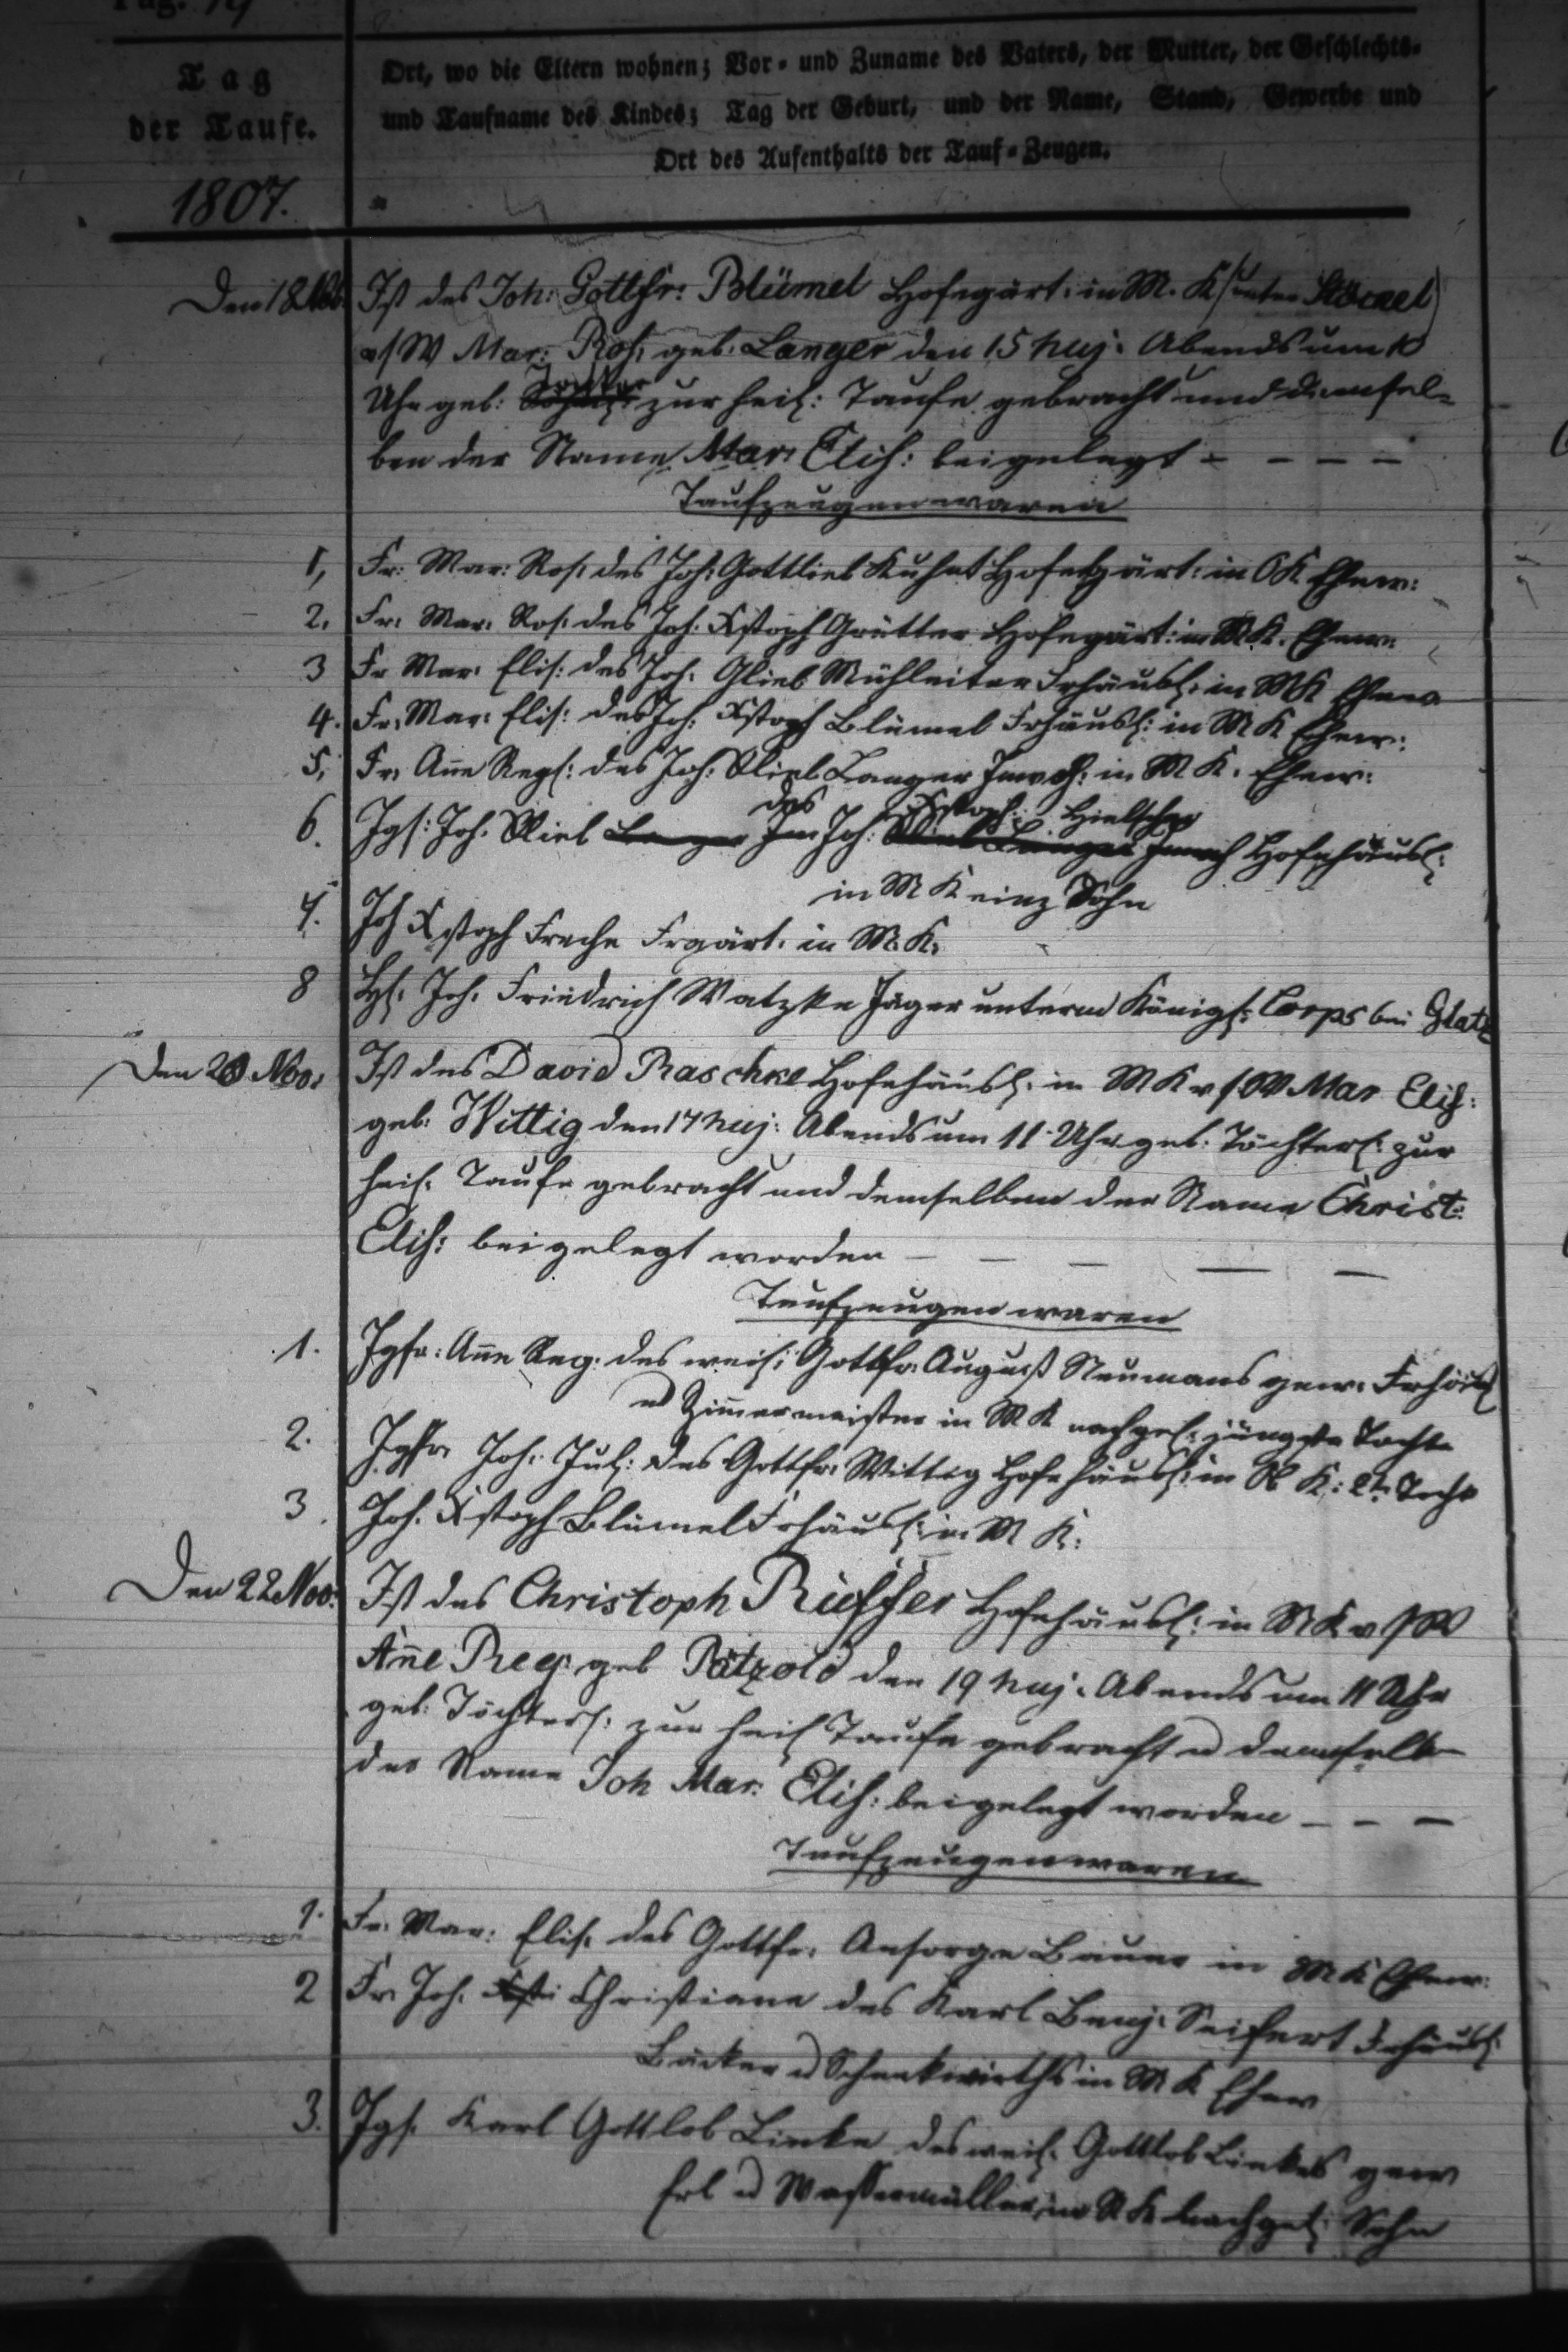 Pag. 19
Tag
der Taufe.
1807.
Ort, wo die Eltern wohnen; Vor- und Zuname des Vaters, der Mutter, der Geschlechts-
und Taufname des Kindes; Tag der Geburt, und der Name, Stand, Gewerbe und
Ort des Aufenthalts der Tauf-Zeugen.
Den 18 Nov. Ist des Joh: Gottfr: Blümel Hofegärt: in M. K (unter
v/W Mar: Ros: geb. Langer den 15 huj. Abends um 10
Uhr geb: Tochter zur heil: Taufe gebracht und demsel-
ben der Name Mar: Elis: beigelegt - - - -
Taufzeugen waren
1, Fr: Mar: Ros: des Joh: Gottlieb Kuhnt Hofegärt: in OK Ehew:
2. Fr: Mar: Ros: des Joh: Xstoph Grütter Hofegärt: in MK. Ehew:
3 Fr Mar: Elis: des Joh: Glieb Mühleiter Frhäusl: in MK Ehew
4. Fr: Mar: Elis: des Joh: Xstoph Blümel Frhäusl: in M K Ehew:
5, Fr: Aññe Regs: des Joh: Glieb Langer Inwoh: in M K. Ehew:
6. Jgs: Joh: Glieb des Joh: Xstoph: Hielscher Hofehäusl:
in M K einz Sohn
7. Joh Xstoph Freche Frgärt. in M. K.
8 Hr: Joh. Friedrich Watzke Jäger unterm Königl: Corps bei Glatz
Den 20 Nov: Ist des David Raschke Hofehäusl: in MK v/W Mar Elis:
geb: Wittig den 17 huj: Abends um 11 Uhr geb: Töchterl: zur
heil. Taufe gebracht und demselben der Name Christ:
Elis: beigelegt worden - - - - -
Taufzeugen waren
1. Jgfr: Aññe Reg: des weil: Gottfr: August Neumans gew: Frhäusl
u Zim̃ermeister in M K nachgel: jüngste Tochter
2. Jgfr: Joh: Jul: des Gottfr: Wittig Hofehäusl: in K: Tocht
3. Joh. Xstoph Blümel Frhäusl: in M K.
Den 22 Nov: Ist des Christoph Rüffer Hofehäusl: in MK v/W
Aññe Reg: geb Pätzold den 19 huj. Abends um 11 Uhr
geb: Töchterl: zur heil Taufe gebracht u demselben
der Name Joh Mar: Elis: beigelegt worden - - -
Taufzeugen waren
1. Fr. Mar: Elis. des Gottfr: Ansorge Bauer in MK Ehew:
2 Fr. Joh. Christiane des Karl Benj: Seifert Frhäusl:
Bäcker u Schenkwirths in M K Ehew
3. Jgs. Karl Gottlob Linke des weil: Gottlob Linkes gew
Erb u Wassermüller in K nachgel: Sohn